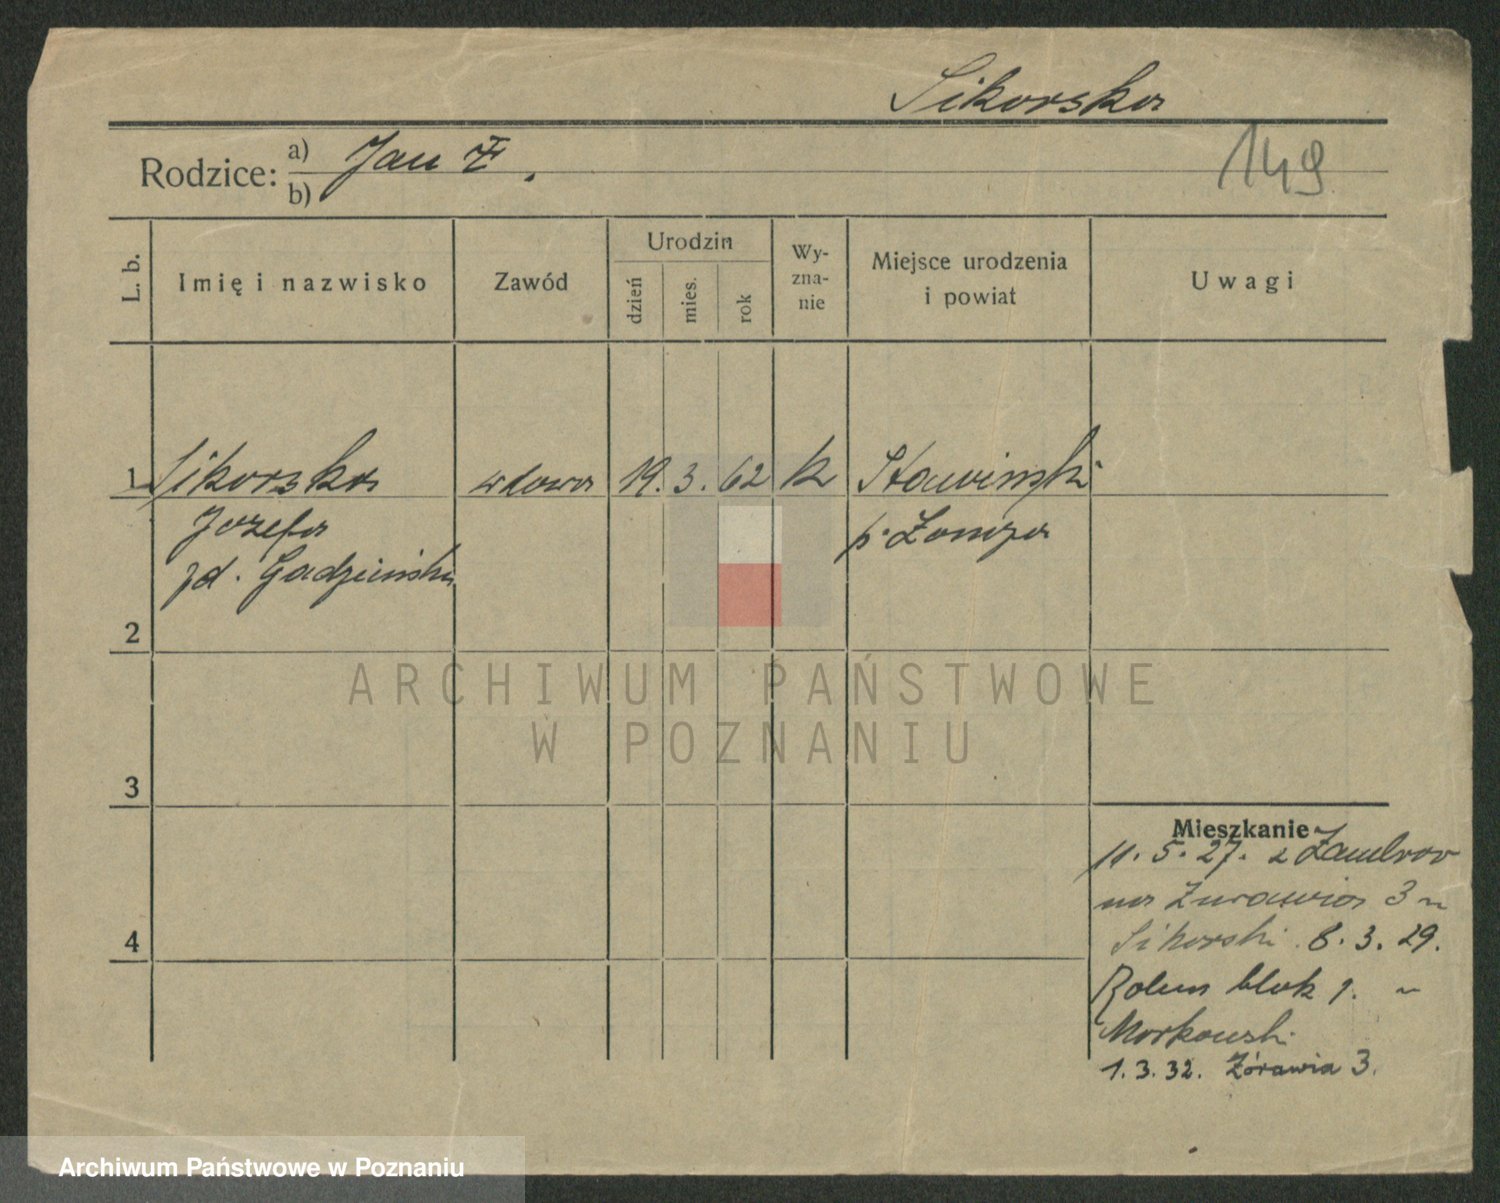 Sikorska
Rodzice: a) Jan F.
b)
149
L. b.
Imię i nazwisko
Zawód
Urodzin
dzień
mies.
rok
Wy-
zna-
nie
Miejsce urodzenia
i powiat
Uwagi
1 Sikorska wdowa 19. 3. 62 k Stawinski
Józefa p. Łomża
zd.
2
3
4
Mieszkanie
11. 5. 27. z Zambrow
na Żurawia 3 ~
Sikorski 8. 3. 29.
blok 1. ~
Morkowski
1. 3. 32. Żórawia 3.
ARCHIWUM PAŃSTWOWE
W POZNANIU
Archiwum Państwowe w Poznaniu